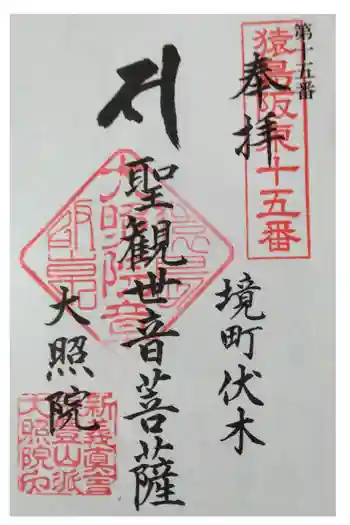 第十五番
猿島阪東十五番
奉拝
聖観世音菩薩
境町伏木
大照院
新義真言
豊山派
大照院内